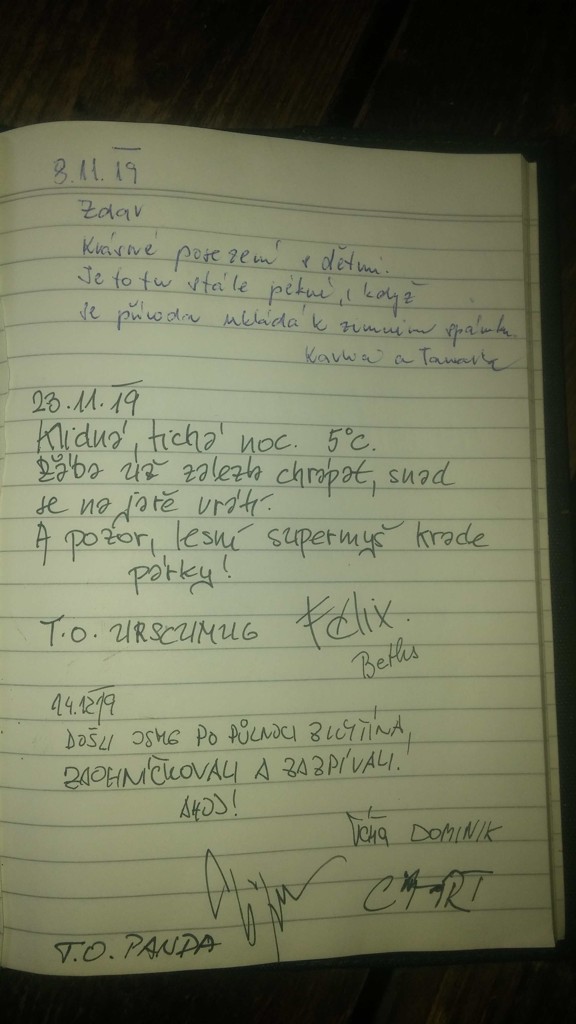 3.11.19
Zdar
Krásné posezení s dětmi.
Je to tu stále pěkné, i když
se příroda ukládá k zimnímu spánku.
a
23.11.19
Klidná, tichá noc. 5°C.
Žába už zalezla chrápat, snad
se na jaře vrátí.
A pozor, lesní supermyš krade
párky!
T.O. URSCUMUG Felix.
Beths
14.12.19
DOŠLI JSME PO PŮLNOCI Z
ZAOHNÍČKOVALI A ZAZPÍVALI!
AHOJ!
DOMINIK
T.O. PANDA